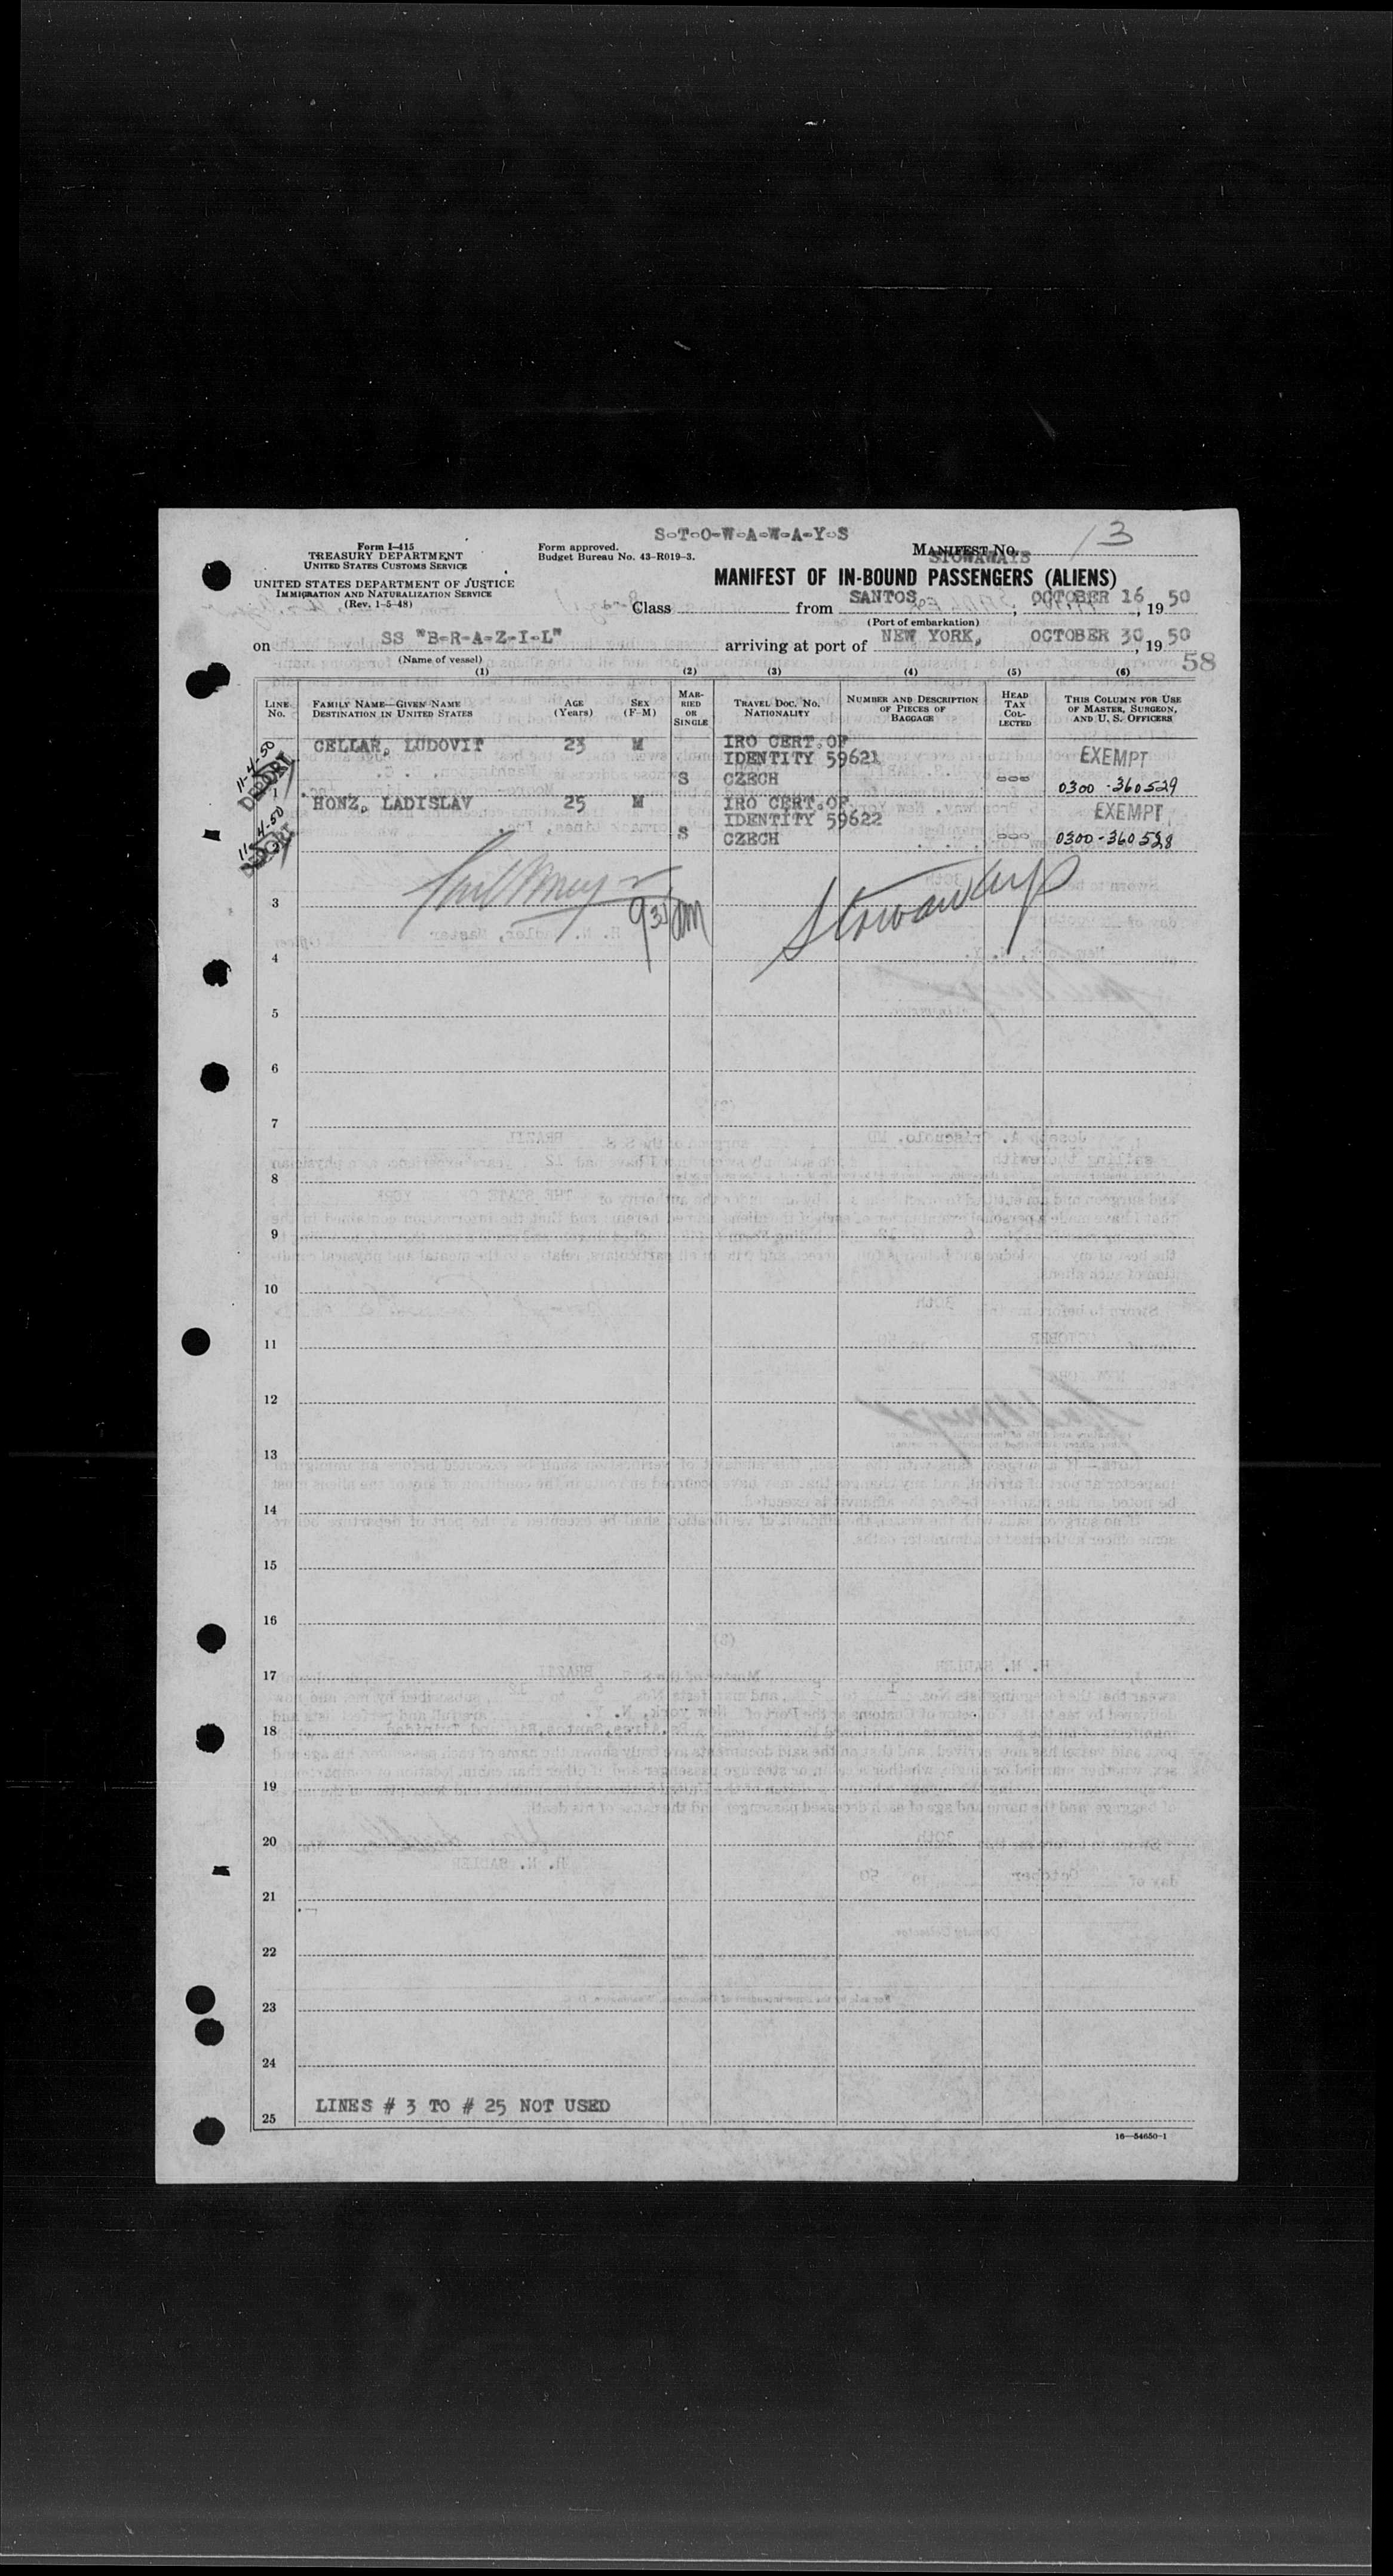 S-T-O-W-A-W-A-Y-S
13
Form I-415
TREASURY DEPARTMENT
UNITED STATES CUSTOMS SERVICE
Form approved.
Budget Bureau No. 43-R019-3.
MANIFEST No.
STOWAWAYS
UNITED STATES DEPARTMENT OF JUSTICE
IMMIGRATION AND NATURALIZATION SERVICE
(Rev. 1-5-48)
MANIFEST OF IN-BOUND PASSENGERS (ALIENS)
Class from SANTOS, OCTOBER 16, 1950
(Port of embarkation)
on SS "B-R-A-Z-I-L" arriving at port of NEW YORK, OCTOBER 30, 1950
(Name of vessel)
58
(1) (2) (3) (4) (5) (6)
LINE No. FAMILY NAME—GIVEN NAME DESTINATION IN UNITED STATES AGE (Years) SEX (F-M) MARRIED OR SINGLE TRAVEL DOC. NO. NATIONALITY NUMBER AND DESCRIPTION OF PIECES OF BAGGAGE HEAD TAX COLLECTED THIS COLUMN FOR USE OF MASTER, SURGEON, AND U. S. OFFICERS
11-4-50
DEPORT
1
CELLAR, LUDOVIT 23 M IRO CERT. OF
IDENTITY 59621 EXEMPT
S CZECH --- 0300-360529
11-4-50
DEPORT
HONZ, LADISLAV 25 M IRO CERT. OF
IDENTITY 59622 EXEMPT
S CZECH --- 0300-360528
9 30 am
Stowaways
3
4
5
6
7
8
9
10
11
12
13
14
15
16
17
18
19
20
21
22
23
24
LINES # 3 TO # 25 NOT USED
25
16—54650-1